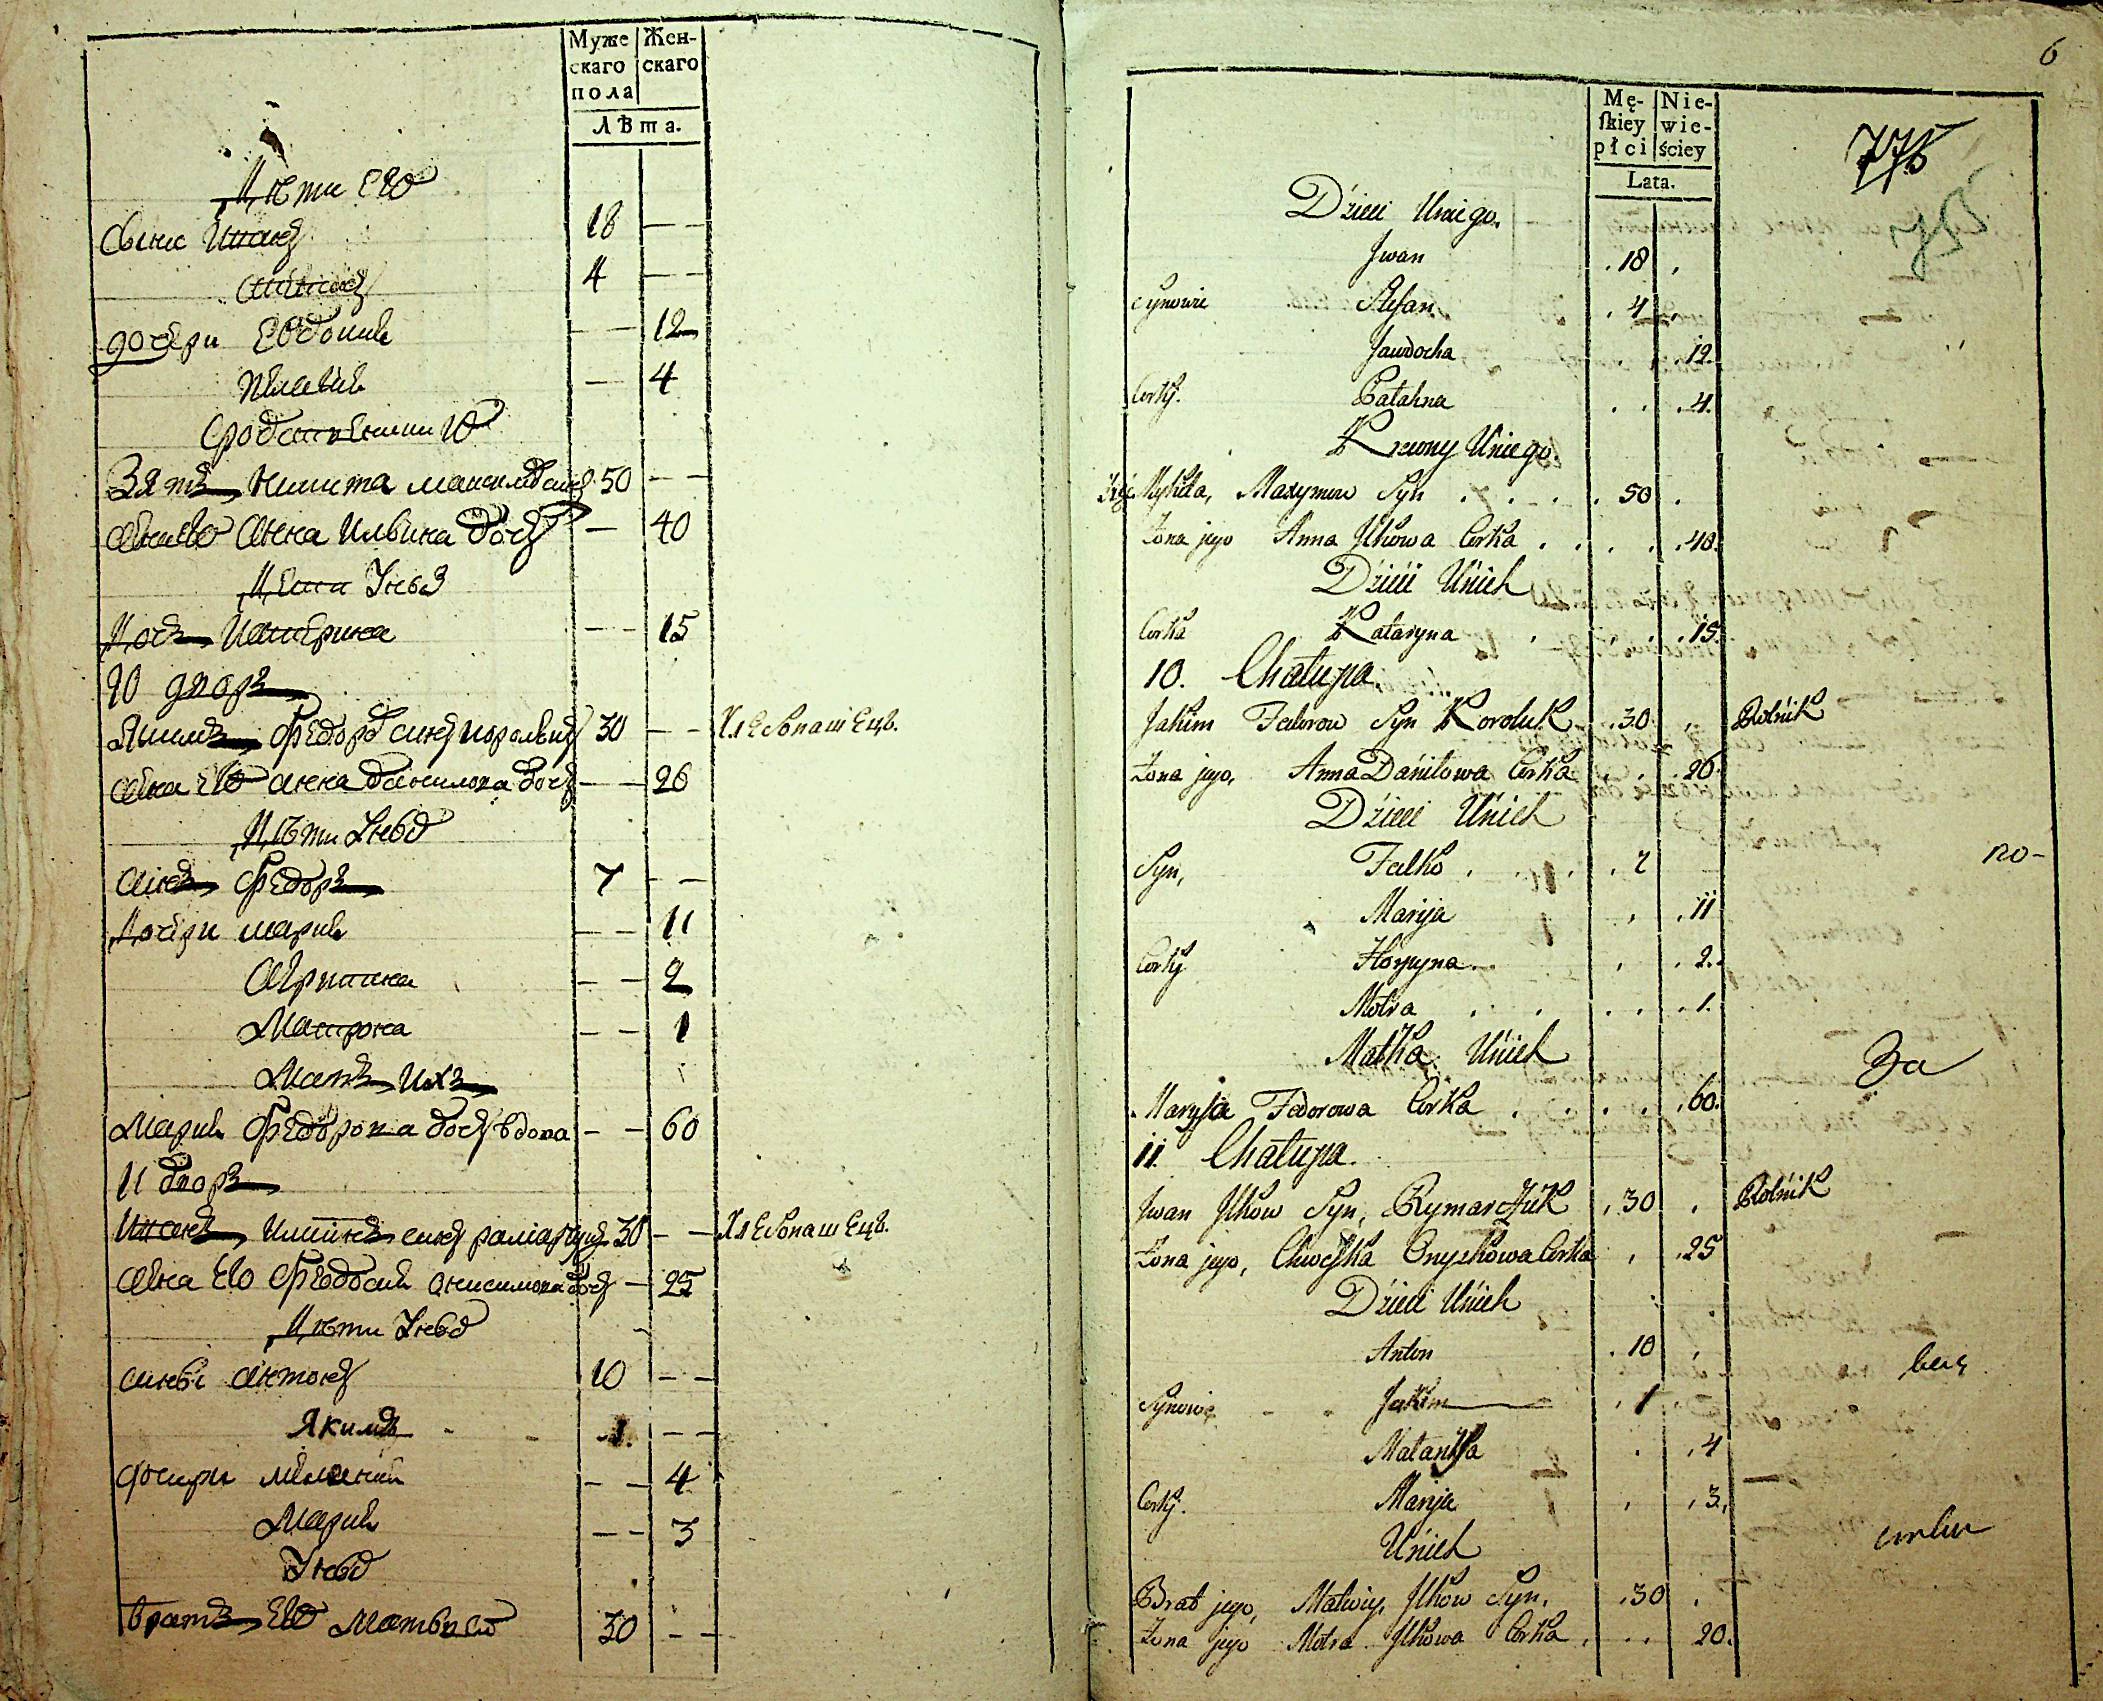 Муже Жен-
скаго скаго
пола
Лѣта.
Дѣти Его
Сыны Иванъ 18 — —
Степанъ 4 — —
дочери Евдокия — — 12
Пелагия — 4
Сродственники Ево
Зять Никита Максимовъ сынъ 50 — —
Жена Ево Анна Илвина дочь — 40
Дети У них
Дочь Катерина — — 15
10 дворъ
Якимъ Федоровъ сынъ Королюкъ 30 — — Хлебопашецъ.
Жена Ево Анна Данилова дочь — — 26
Дѣти У нихъ
Сынъ Федоръ 7 — —
Дочери Мария — — 11
Агрипина — — 2
Матрона — — 1
Мать Ихъ
Мария Федорова дочь вдова — — 60
11 дворъ
Иванъ Илиинъ сынъ Рымарчукъ 30 — — Хлебопашецъ.
Жена Ево Феодосия Онисимова дочь — 25
Дѣти У нихъ
Сыны Антонъ 10 — —
Якимъ 1 — —
дочери Мелания — — 4
Мария — — 3
У нихъ
Братъ Ево Матвей 30 — —
6
Mę- Nie-
skiey wie-
płci ściey
Lata.
775
75
Dzieci Uniego.
Jwan . 18 .
Synowie Stefan . 4 .
Jawdocha . . 12.
Corki. Pałahna . . . 4.
Krewny Uniego.
Zięć Mykita, Maxymow Syn . . . . 50 .
Żona jego Anna Jlkowa Corka . . . . 40.
Dzieci Unich
Corka Kataryna . . . . 15
10. Chałupa.
Jakim Fedorow Syn Koroluk . 30 . Rolnik
Żona jego, Anna Daniłowa Corka . . . 26.
Dzieci Unich
Syn, Fedko . . . . 7
Marija . . 11
Corki Horpyna . . . 2.
Motra . . . . . 1.
Matka Unich
Maryja Fedorowa Corka . . . . . 60.
11. Chałupa.
Jwan Jlkow Syn, Rymarczuk . 30 . Rolnik
Żona jego, Chweska Onyskowa Corka . . 25
Dzieci Unich
Anton . 10 .
Synowie - - Jakim . 1 .
Małanka . . 4
Corki. Marija . . 3.
Unich
Brat jego, Matwiy, Jlkow Syn. . 30 .
Żona jego Motra Jlkowa Corka . . . 20.
по-
За